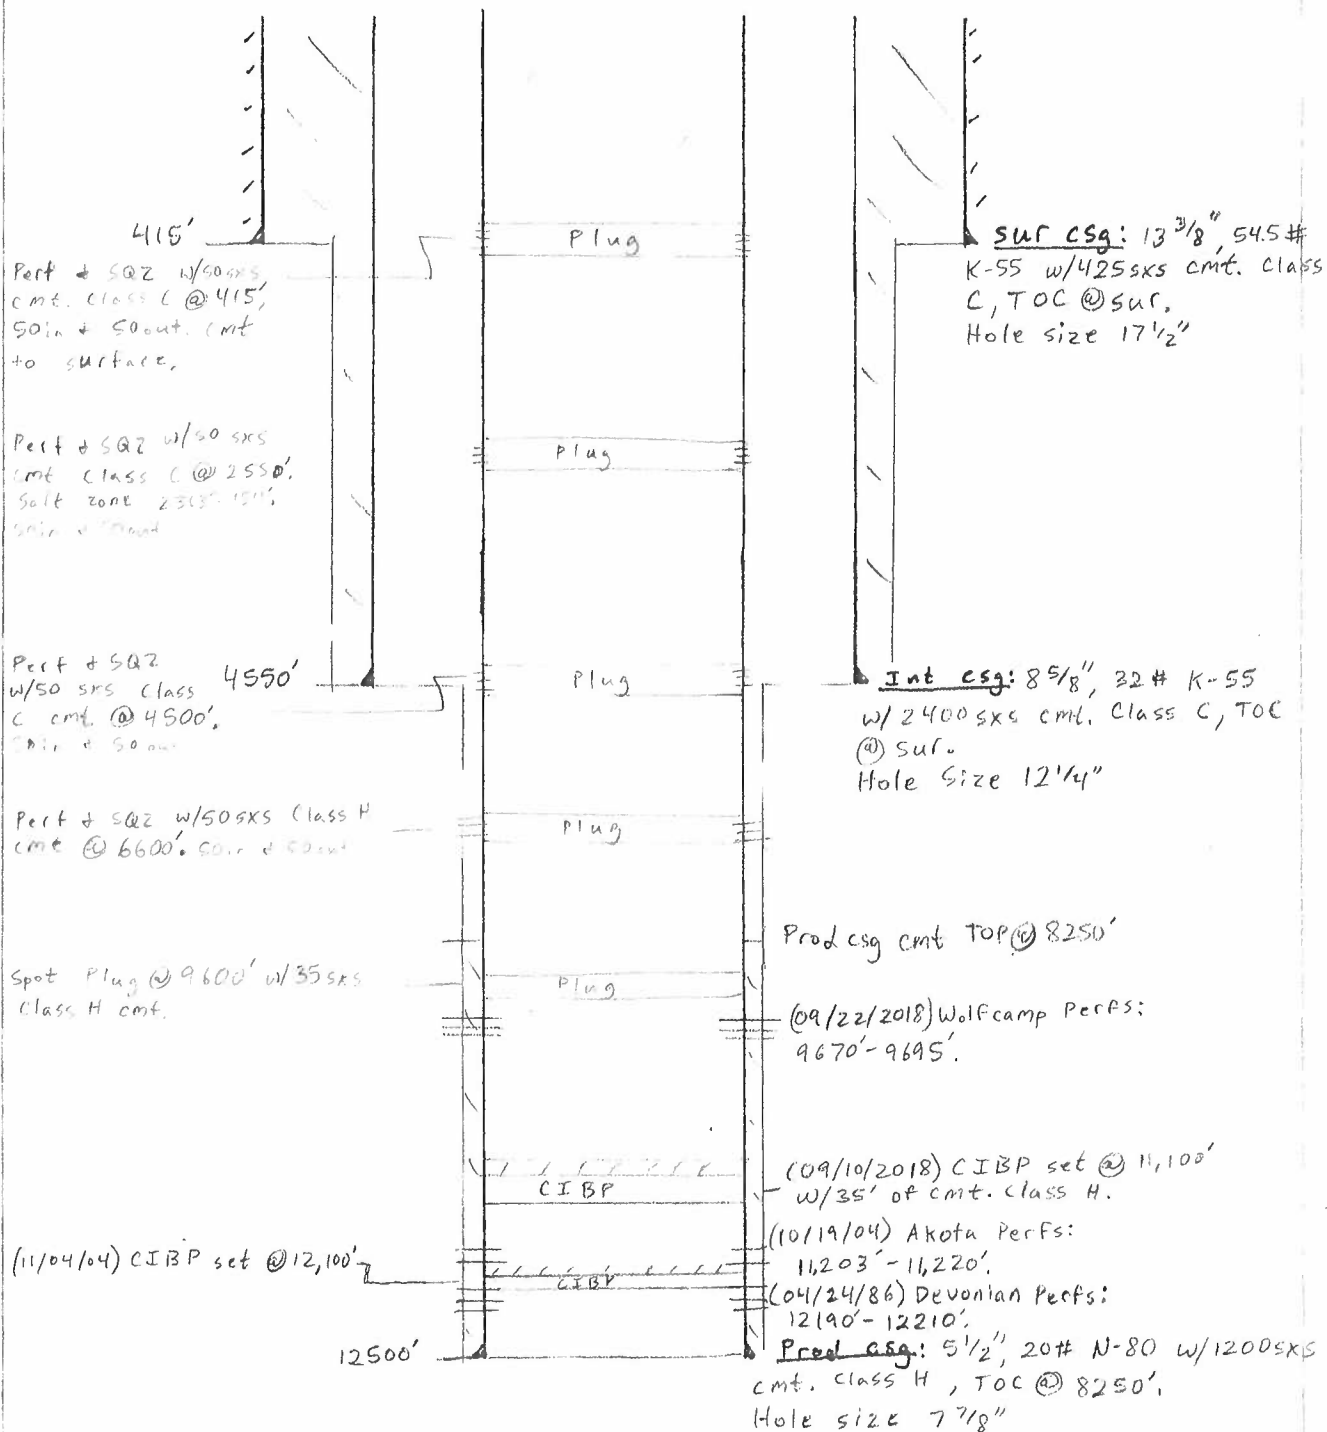 415'
Perf & SQZ w/50 sxs
cmt. Class C @ 415',
50in & 50out. Cmt
to surface.
Perf & SQZ w/50 sxs
cmt Class C @ 2550'.
Salt zone
Perf & SQZ
w/50 sxs Class
C cmt. @ 4500'.
50in & 50out
4550'
Perf & SQZ w/50sxs Class H
cmt @ 6600'. 50in & 50out
Spot Plug @ 9600' w/35sxs
Class H cmt.
(11/04/04) CIBP set @ 12,100'
12500'
Plug
Plug
Plug
Plug
Plug
CIBP
CIBP
Sur csg: 13 3/8", 54.5#
K-55 w/425sxs cmt. Class
C, TOC @ Sur.
Hole size 17 1/2"
Int csg: 8 5/8", 32# K-55
w/2400sxs cmt. Class C, TOC
@ Sur.
Hole Size 12 1/4"
Prod csg cmt TOP @ 8250'
(09/22/2018) Wolfcamp Perfs:
9670'-9695'.
(09/10/2018) CIBP set @ 11,100'
w/35' of cmt. Class H.
(10/19/04) Akota Perfs:
11,203'-11,220'.
(04/24/86) Devonian Perfs:
12190'-12210'.
Prod csg: 5 1/2", 20# N-80 w/1200sxs
cmt. Class H, TOC @ 8250'.
Hole size 7 7/8"